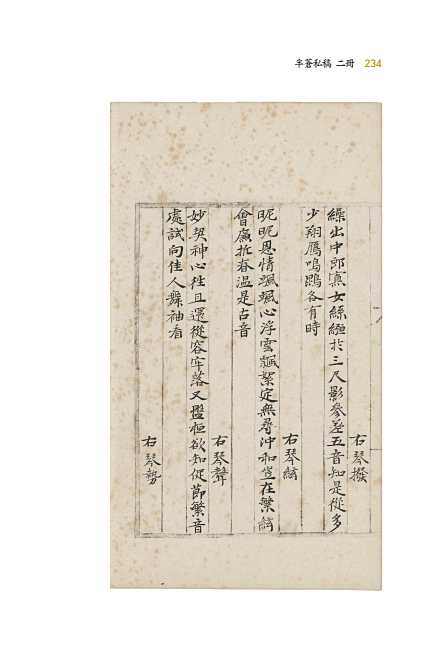 半蒼私稿 二冊 234
右琴撥
繰出中郎寡女絲絙於三尺影參差五音知是從多
少翔鴈鳴鵾各有時
右琴絃
昵昵恩情颯颯心浮雲飄絮定無尋沖和豈在繁絃
會廉折春溫是古音
右琴聲
妙契神心往且還從容牢落又盤桓欲知促節繁音
處試向佳人舞袖看
右琴勢